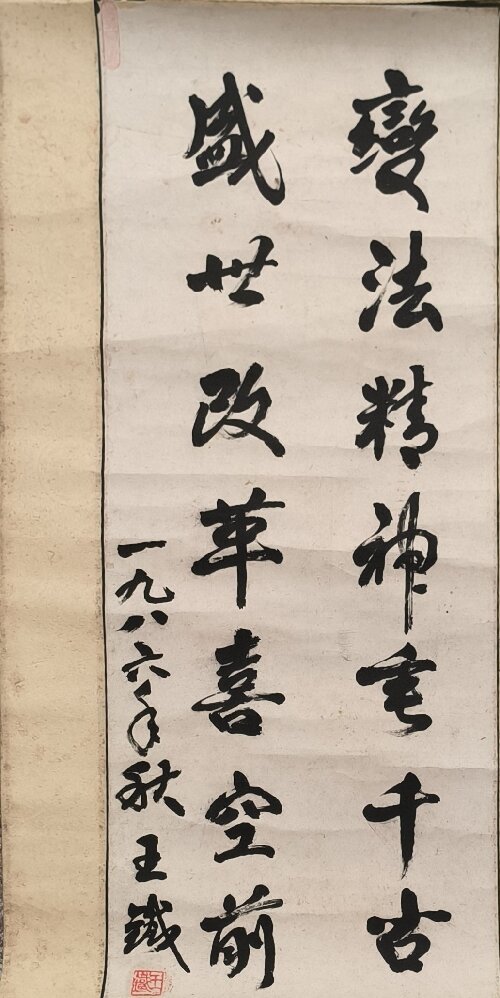 變法精神垂千古
盛世改革喜空前
一九八六年秋王鐵